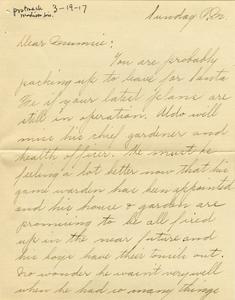 postmark 3-19-17
Madison, Wis.
Sunday P.M.
Dear Mummie:
You are probably
packing up to leave for Santa
Fe if your latest plans are
still in operation. Aldo will
miss his chief gardener and
health officer. He must be
feeling a lot better now that his
game warden has been appointed
and his house & garden are
promising to be all fixed
up in the near future and
his boys have their tonsils out.
No wonder he wasn't very well
when he had so many things